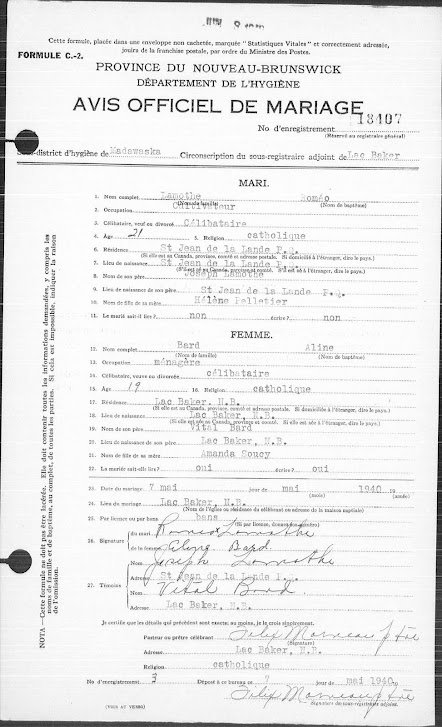 Cette formule, placée dans une enveloppe non cachetée, marquée "Statistiques Vitales" et correctement adressée,
jouira de la franchise postale, par ordre du Ministre des Postes.
FORMULE C.-2.
PROVINCE DU NOUVEAU-BRUNSWICK
DÉPARTEMENT DE L'HYGIÈNE
AVIS OFFICIEL DE MARIAGE
No d'enregistrement 18407
(Réservé au registraire général)
Sous-district d'hygiène de Madawaska Circonscription du sous-registraire adjoint de Lac Baker
MARI.
1. Nom complet Lamothe Roméo
(Nom de famille) (Nom de baptême)
2. Occupation Cultivateur
3. Célibataire, veuf ou divorcé Célibataire
4. Age 21 5. Religion catholique
6. Résidence St Jean de la Lande P.Q.
(Si elle est au Canada, province, comté et adresse postale. Si domicilié à l'étranger, dire le pays.)
7. Lieu de naissance St Jean de la Lande P.
(S'il est au Canada, province et comté. S'il est né à l'étranger, dire le pays.)
8. Nom de son père Joseph Lamothe
9. Lieu de naissance de son père St Jean de la Lande P.Q.
10. Nom de fille de sa mère Hélène Pelletier
11. Le marié sait-il lire? non écrire? non
FEMME.
12. Nom complet Bard Aline
(Nom de famille) (Nom de baptême)
13. Occupation ménagère
14. Célibataire, veuve ou divorcée célibataire
15. Age 19 16. Religion catholique
17. Résidence Lac Baker, N.B.
(Si elle est au Canada, province, comté et adresse postale. Si domiciliée à l'étranger, dire le pays.)
18. Lieu de naissance Lac Baker, N.B.
19. Nom de son père Vital Bard
20. Lieu de naissance de son père Lac Baker, N.B.
21. Nom de fille de sa mère Amanda Soucy
22. La mariée sait-elle lire? oui écrire? oui
23. Date du mariage 7 mai jour de mai 1940.
(mois) (année)
24. Lieu du mariage Lac Baker, N.B.
(Nom de l'église ou résidence du célébrant ou adresse de la maison capitale)
25. Par licence ou par bans bans
(Si par licence, donner)
26. Signature du mari Romeo Lamothe
de la femme Aline Bard
27. Témoins
Nom Joseph Lamothe
Adresse St Jean de la Lande
Nom Vital Bard
Adresse Lac Baker, N.B.
Je certifie que les détails qui précèdent sont exacts; au moins, je le crois sincèrement.
Pasteur ou prêtre célébrant Felix Morneau ptre
Adresse Lac Baker, N.B.
Religion catholique
No d'enregistrement 3 Déposé à ce bureau ce 7 mai 1940.
Felix Morneau ptre
Signature du sous-registraire adjoint.
(VOIR AU VERSO)
NOTA—Cette formule ne doit pas être lacérée. Elle doit contenir toutes les informations demandées, y compris les
noms de famille et de baptême, au complet, de toutes les parties. Si cela est impossible, indiquer la raison
de l'omission.